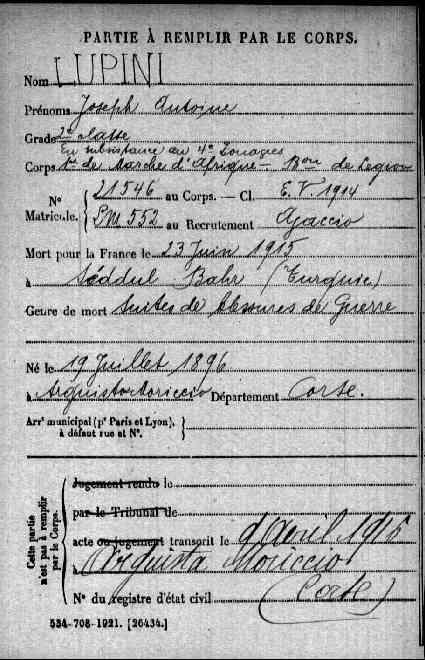 PARTIE À REMPLIR PAR LE CORPS.
Nom LUPINI
Prénoms Joseph Antoine
Grade 2e classe
En subsistance au 4e Zouaves
Corps de Marche d'Afrique - Bon de Légion
N° Matricule. 21546 au Corps. — Cl. E.V 1914
SM 552 au Recrutement Ajaccio
Mort pour la France le 23 Juin 1915
à Séddul Bahr (Turquie)
Genre de mort Suites de blessures de Guerre
Né le 19 Juillet 1896
à Arguistamoriccio Département Corse.
Arrt municipal (pr Paris et Lyon),
à défaut rue et N°.
Cette partie n'est pas à remplir par le Corps.
Jugement rendu le
par le Tribunal de
acte ou jugement transcrit le Avril 1916
à Arguista Moriccio
N° du registre d'état civil (Corse)
534-708-1921. [26434.]